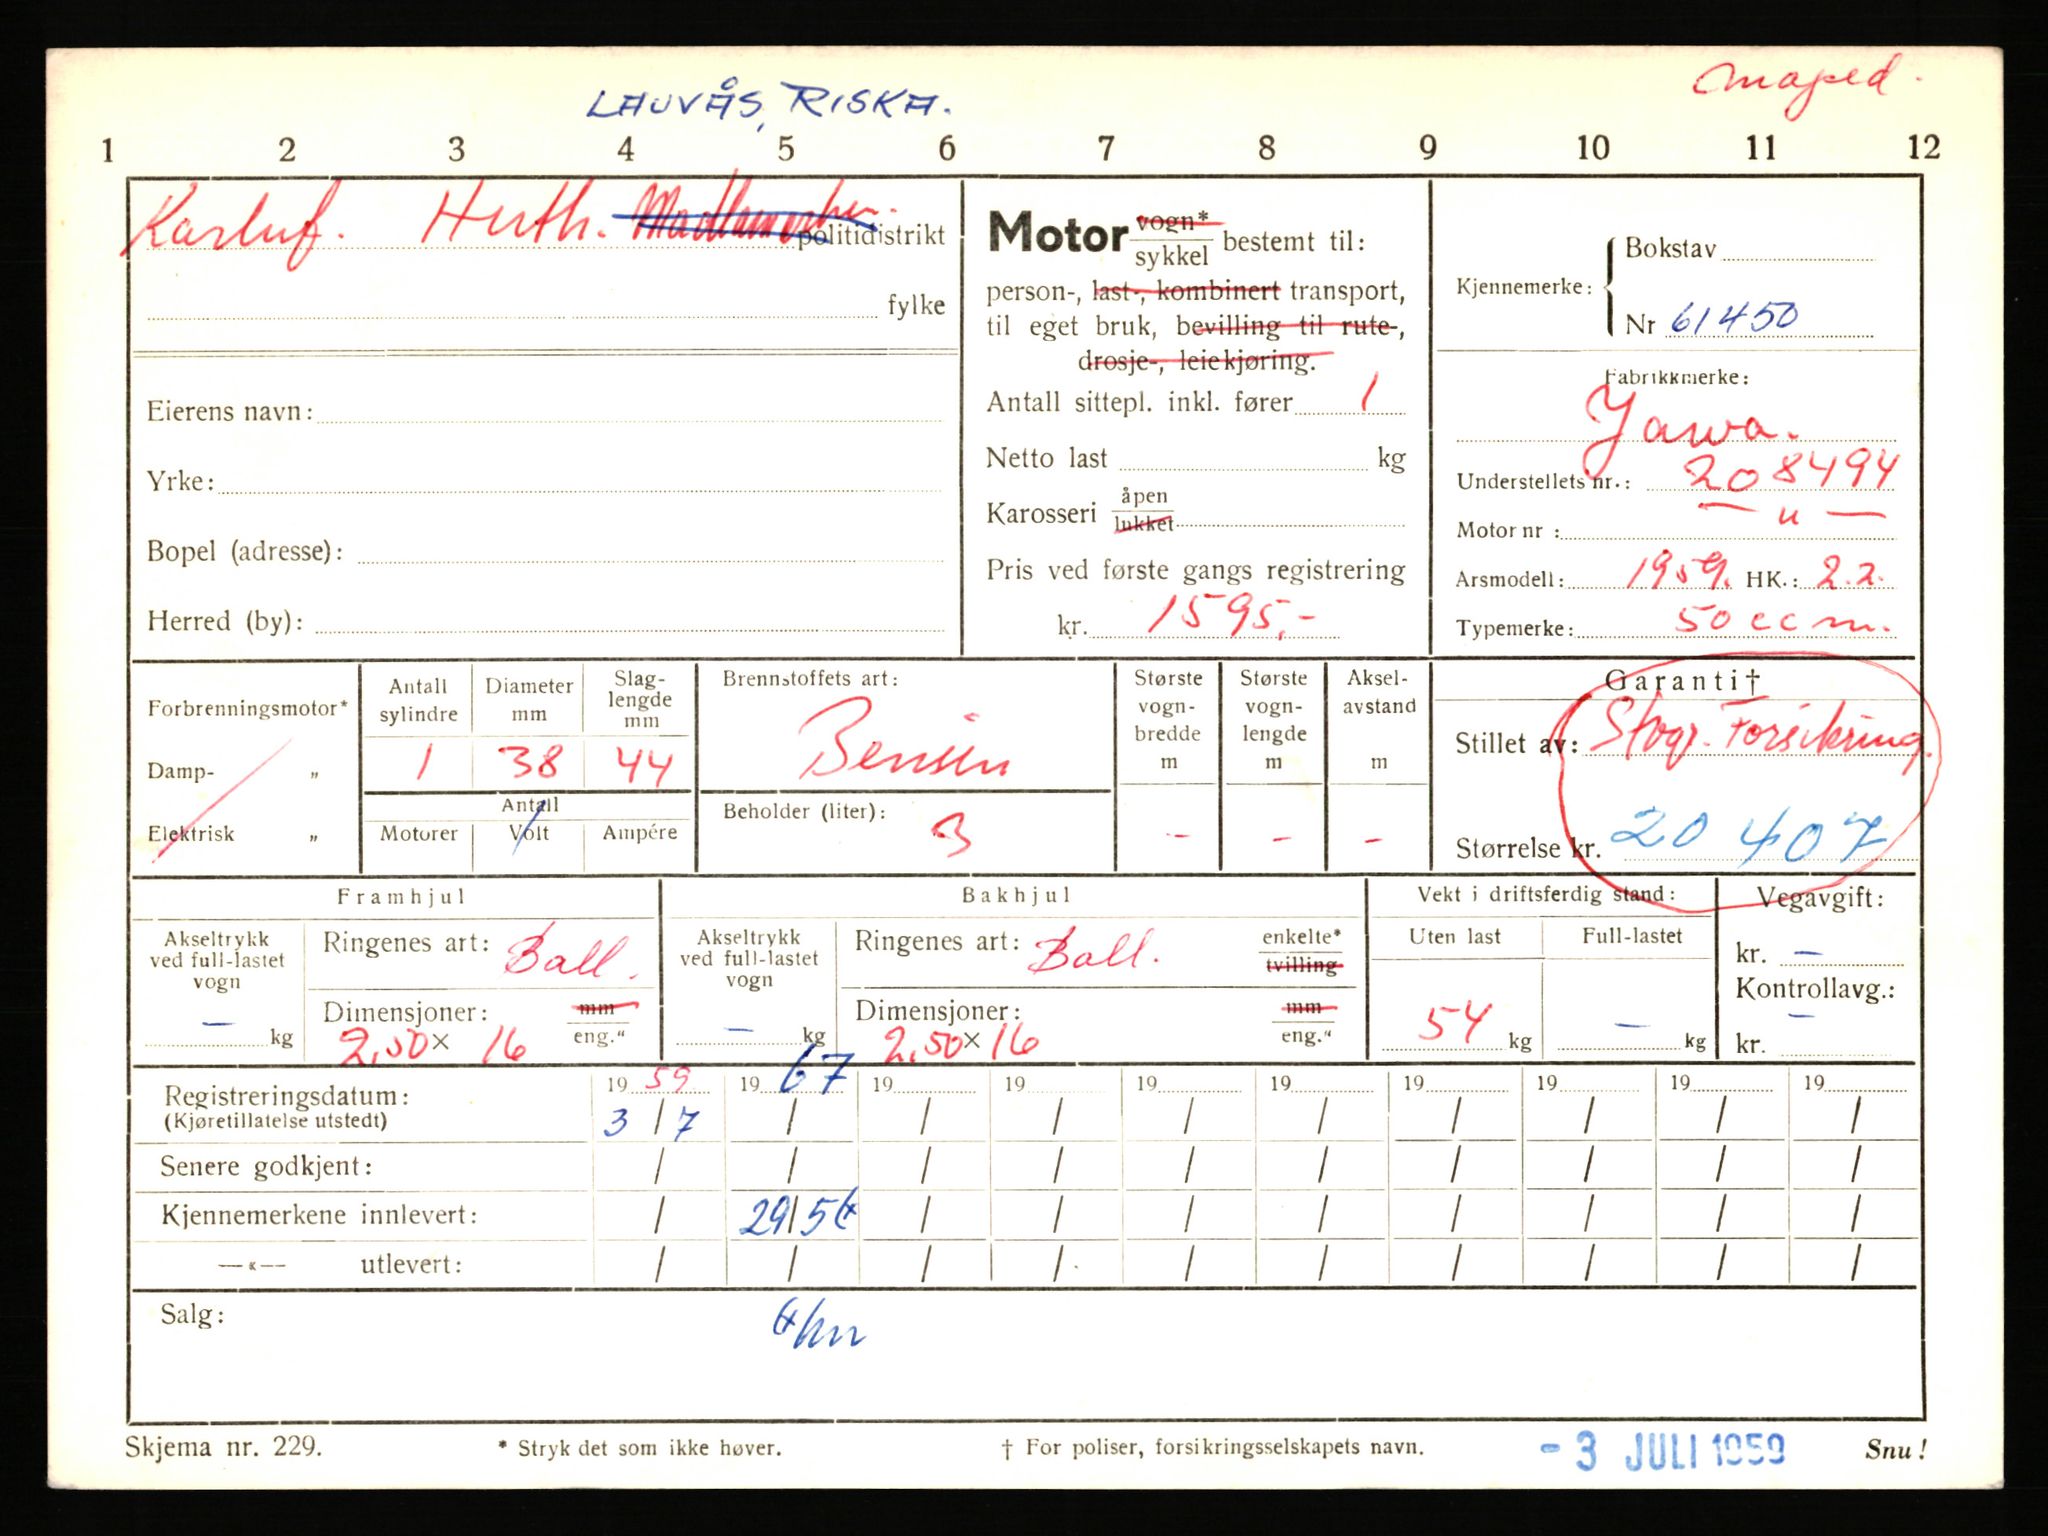 LAUVÅS, RISKA.
Moped.
1 2 3 4 5 6 7 8 9 10 11 12
Karluf. Huth. politidistrikt
fylke
Eierens navn:
Yrke:
Bopel (adresse):
Herred (by):
Motor vogn* sykkel bestemt til:
person-, last-, kombinert transport,
til eget bruk, bevilling til rute-,
drosje-, leiekjøring.
Antall sittepl. inkl. fører 1
Netto last kg
Karosseri åpen lukket
Pris ved første gangs registrering
kr. 1595,-
Kjennemerke: Bokstav
Nr 61450
Fabrikkmerke:
Jawa.
Understellets nr.: 208494
Motor nr : — " —
Arsmodell: 1959. HK.: 2.2.
Typemerke: 50 ccm.
Forbrenningsmotor*
Damp- „
Elektrisk „
Antall sylindre Diameter mm Slag-lengde mm
1 38 44
Antall
Motorer Volt Ampére
Brennstoffets art:
Bensin
Beholder (liter): 3
Største vogn-bredde m Største vogn-lengde m Aksel-avstand m
- - -
Garanti†
Stillet av: Forsikring.
Størrelse kr. 20 407
Framhjul
Akseltrykk ved full-lastet vogn
— kg
Ringenes art: Ball.
Dimensjoner: mm
2,50 × 16 eng."
Bakhjul
Akseltrykk ved full-lastet vogn
— kg
Ringenes art: Ball. enkelte* tvilling
Dimensjoner: mm
2,50 × 16 eng."
Vekt i driftsferdig stand:
Uten last Full-lastet
54 kg — kg
Vegavgift:
kr. —
Kontrollavg.:
kr. —
Registreringsdatum: 19 59 19 67 19 19 19 19 19 19 19 19
(Kjøretillatelse utstedt) 3 / 7 / / / / / / / / /
Senere godkjent: / / / / / / / / / /
Kjennemerkene innlevert: / 29/5 / / / / / / / /
—«— utlevert: / / / / / / / / / /
Salg:
Skjema nr. 229. * Stryk det som ikke høver. † For poliser, forsikringsselskapets navn. - 3 JULI 1959 Snu!